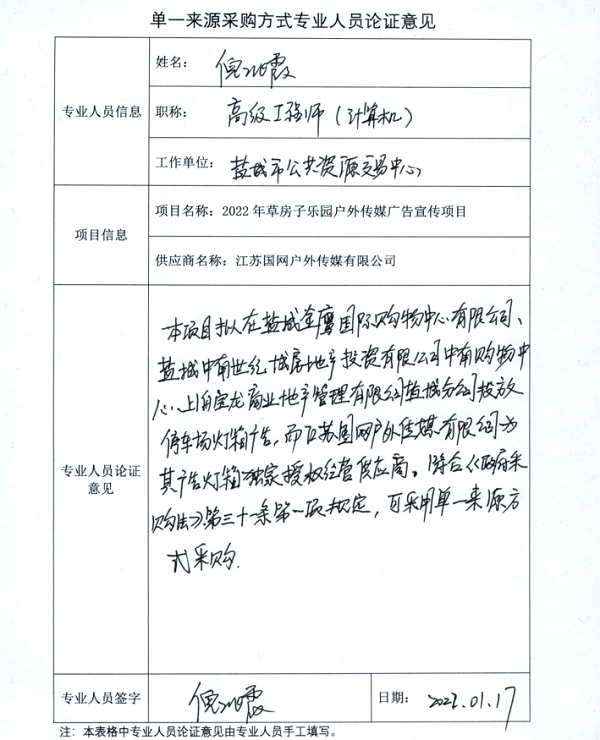 单一来源采购方式专业人员论证意见
专业人员信息
姓名：倪 霞
职称：高级工程师（计算机）
工作单位：盐城市公共资源交易中心
项目信息
项目名称：2022 年草房子乐园户外传媒广告宣传项目
供应商名称：江苏国网户外传媒有限公司
专业人员论证
意见
本项目拟在盐城金鹰国际购物中心有限公司、
盐城中南世纪城房地产投资有限公司中南购物中
心、上海宝龙商业地产管理有限公司盐城分公司投放
停车场灯箱广告，而江苏国网户外传媒有限公司为
其广告灯箱独家授权经营供应商。符合《政府采
购法》第三十一条第一项规定，可采用单一来源方
式采购.
专业人员签字
倪 霞
日期：2022.01.17
注：本表格中专业人员论证意见由专业人员手工填写。